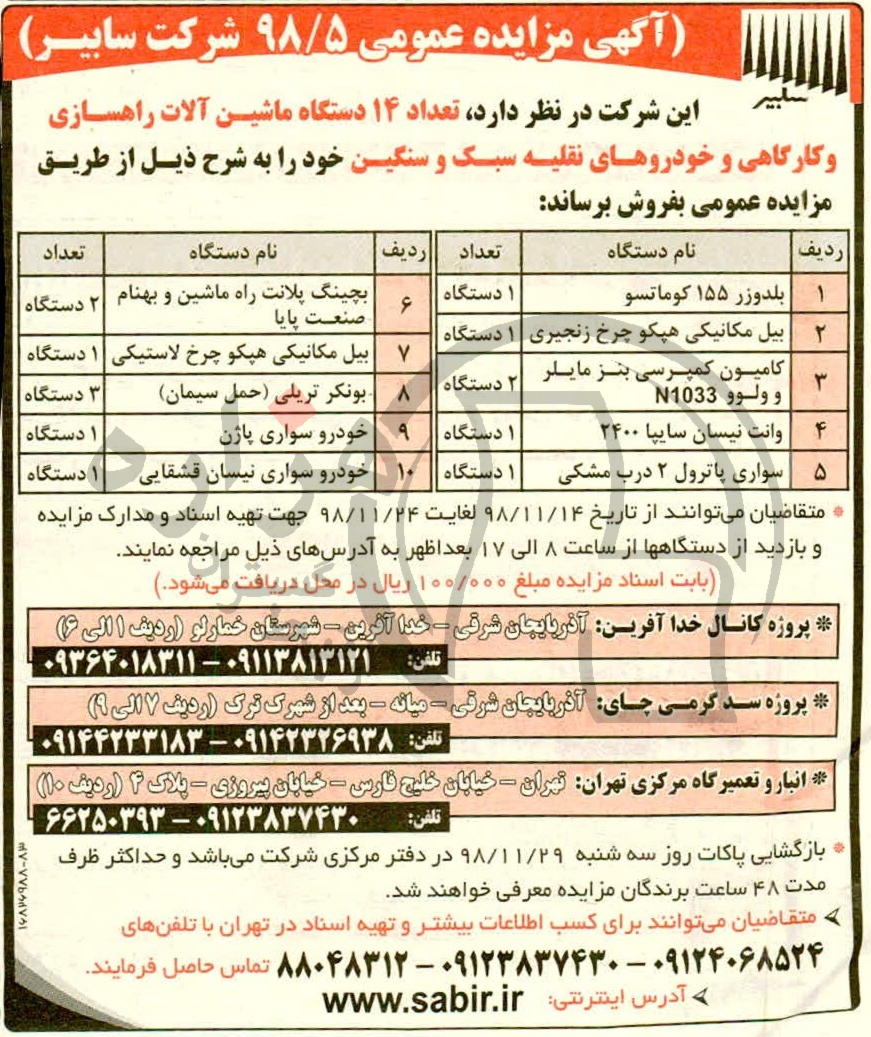 سابیر
(آگهی مزایده عمومی ۹۸/۵ شرکت سابیر)
این شرکت در نظر دارد، تعداد ۱۴ دستگاه ماشین آلات راهسازی
و کارگاهی و خودروهای نقلیه سبک و سنگین خود را به شرح ذیل از طریق
مزایده عمومی بفروش برساند:
ردیف نام دستگاه تعداد
۱ بلدوزر ۱۵۵ کوماتسو ۱ دستگاه
۲ بیل مکانیکی هپکو چرخ زنجیری ۱ دستگاه
۳ کامیون کمپرسی بنز مایلر
و ولوو N1033 ۲ دستگاه
۴ وانت نیسان سایپا ۲۴۰۰ ۱ دستگاه
۵ سواری پاترول ۲ درب مشکی ۱ دستگاه
ردیف نام دستگاه تعداد
۶ بچینگ پلانت راه ماشین و بهنام
صنعت پایا ۲ دستگاه
۷ بیل مکانیکی هپکو چرخ لاستیکی ۱ دستگاه
۸ بونکر تریلی (حمل سیمان) ۳ دستگاه
۹ خودرو سواری پاژن ۱ دستگاه
۱۰ خودرو سواری نیسان قشقایی ۱ دستگاه
* متقاضیان می‌توانند از تاریخ ۹۸/۱۱/۱۴ لغایت ۹۸/۱۱/۲۴ جهت تهیه اسناد و مدارک مزایده
و بازدید از دستگاهها از ساعت ۸ الی ۱۷ بعداظهر به آدرس‌های ذیل مراجعه نمایند.
(بابت اسناد مزایده مبلغ ۱۰۰/۰۰۰ ریال در محل دریافت می‌شود.)
* پروژه کانال خدا آفرین: آذربایجان شرقی – خدا آفرین – شهرستان خمارلو (ردیف ۱ الی ۶)
تلفن: ۰۹۱۱۳۸۱۳۱۲۱ – ۰۹۳۶۴۰۱۸۳۱۱
* پروژه سد گرمی چای: آذربایجان شرقی – میانه – بعد از شهرک ترک (ردیف ۷ الی ۹)
تلفن: ۰۹۱۴۲۳۲۶۹۳۸ – ۰۹۱۴۴۲۳۳۱۸۳
* انبار و تعمیرگاه مرکزی تهران: تهران – خیابان خلیج فارس – خیابان پیروزی – پلاک ۴ (ردیف ۱۰)
تلفن: ۰۹۱۲۳۸۳۷۴۳۰ – ۶۶۲۵۰۳۹۳
* بازگشایی پاکات روز سه شنبه ۹۸/۱۱/۲۹ در دفتر مرکزی شرکت می‌باشد و حداکثر ظرف
مدت ۴۸ ساعت برندگان مزایده معرفی خواهند شد.
متقاضیان می‌توانند برای کسب اطلاعات بیشتر و تهیه اسناد در تهران با تلفن‌های
۰۹۱۲۴۰۶۸۵۲۴ – ۰۹۱۲۳۸۳۷۴۳۰ – ۸۸۰۴۸۳۱۲ تماس حاصل فرمایند.
آدرس اینترنتی: www.sabir.ir